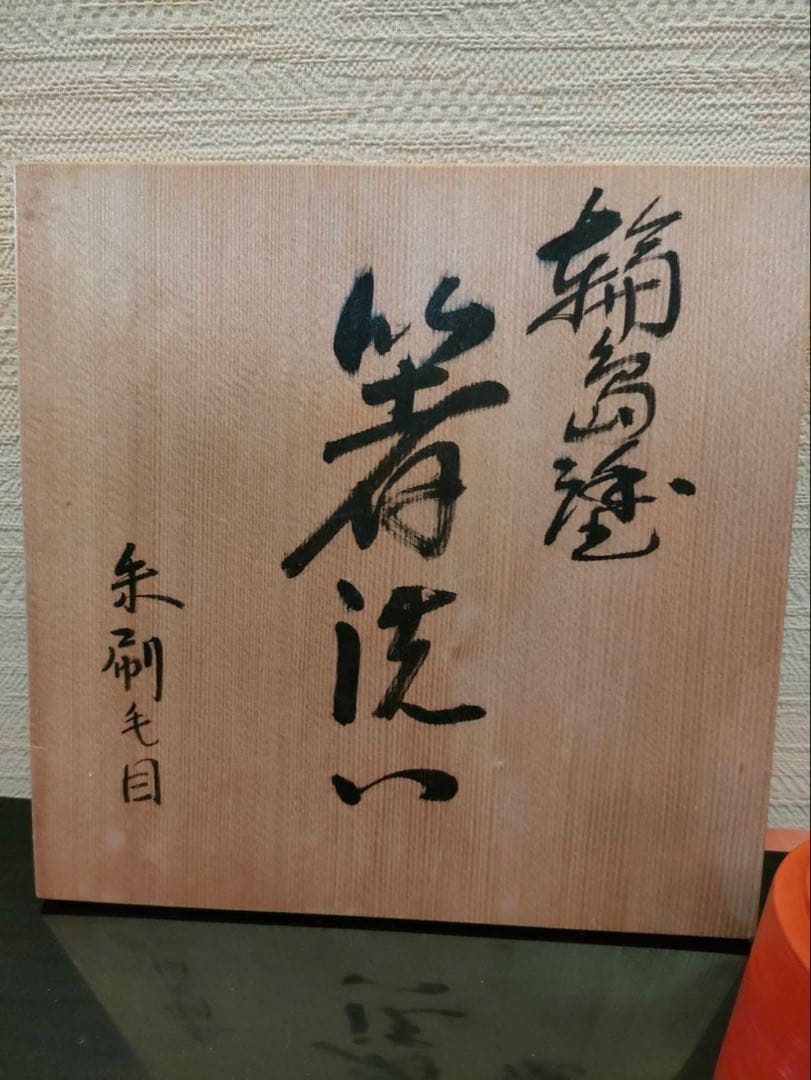 輪島塗
箸洗い
朱刷毛目